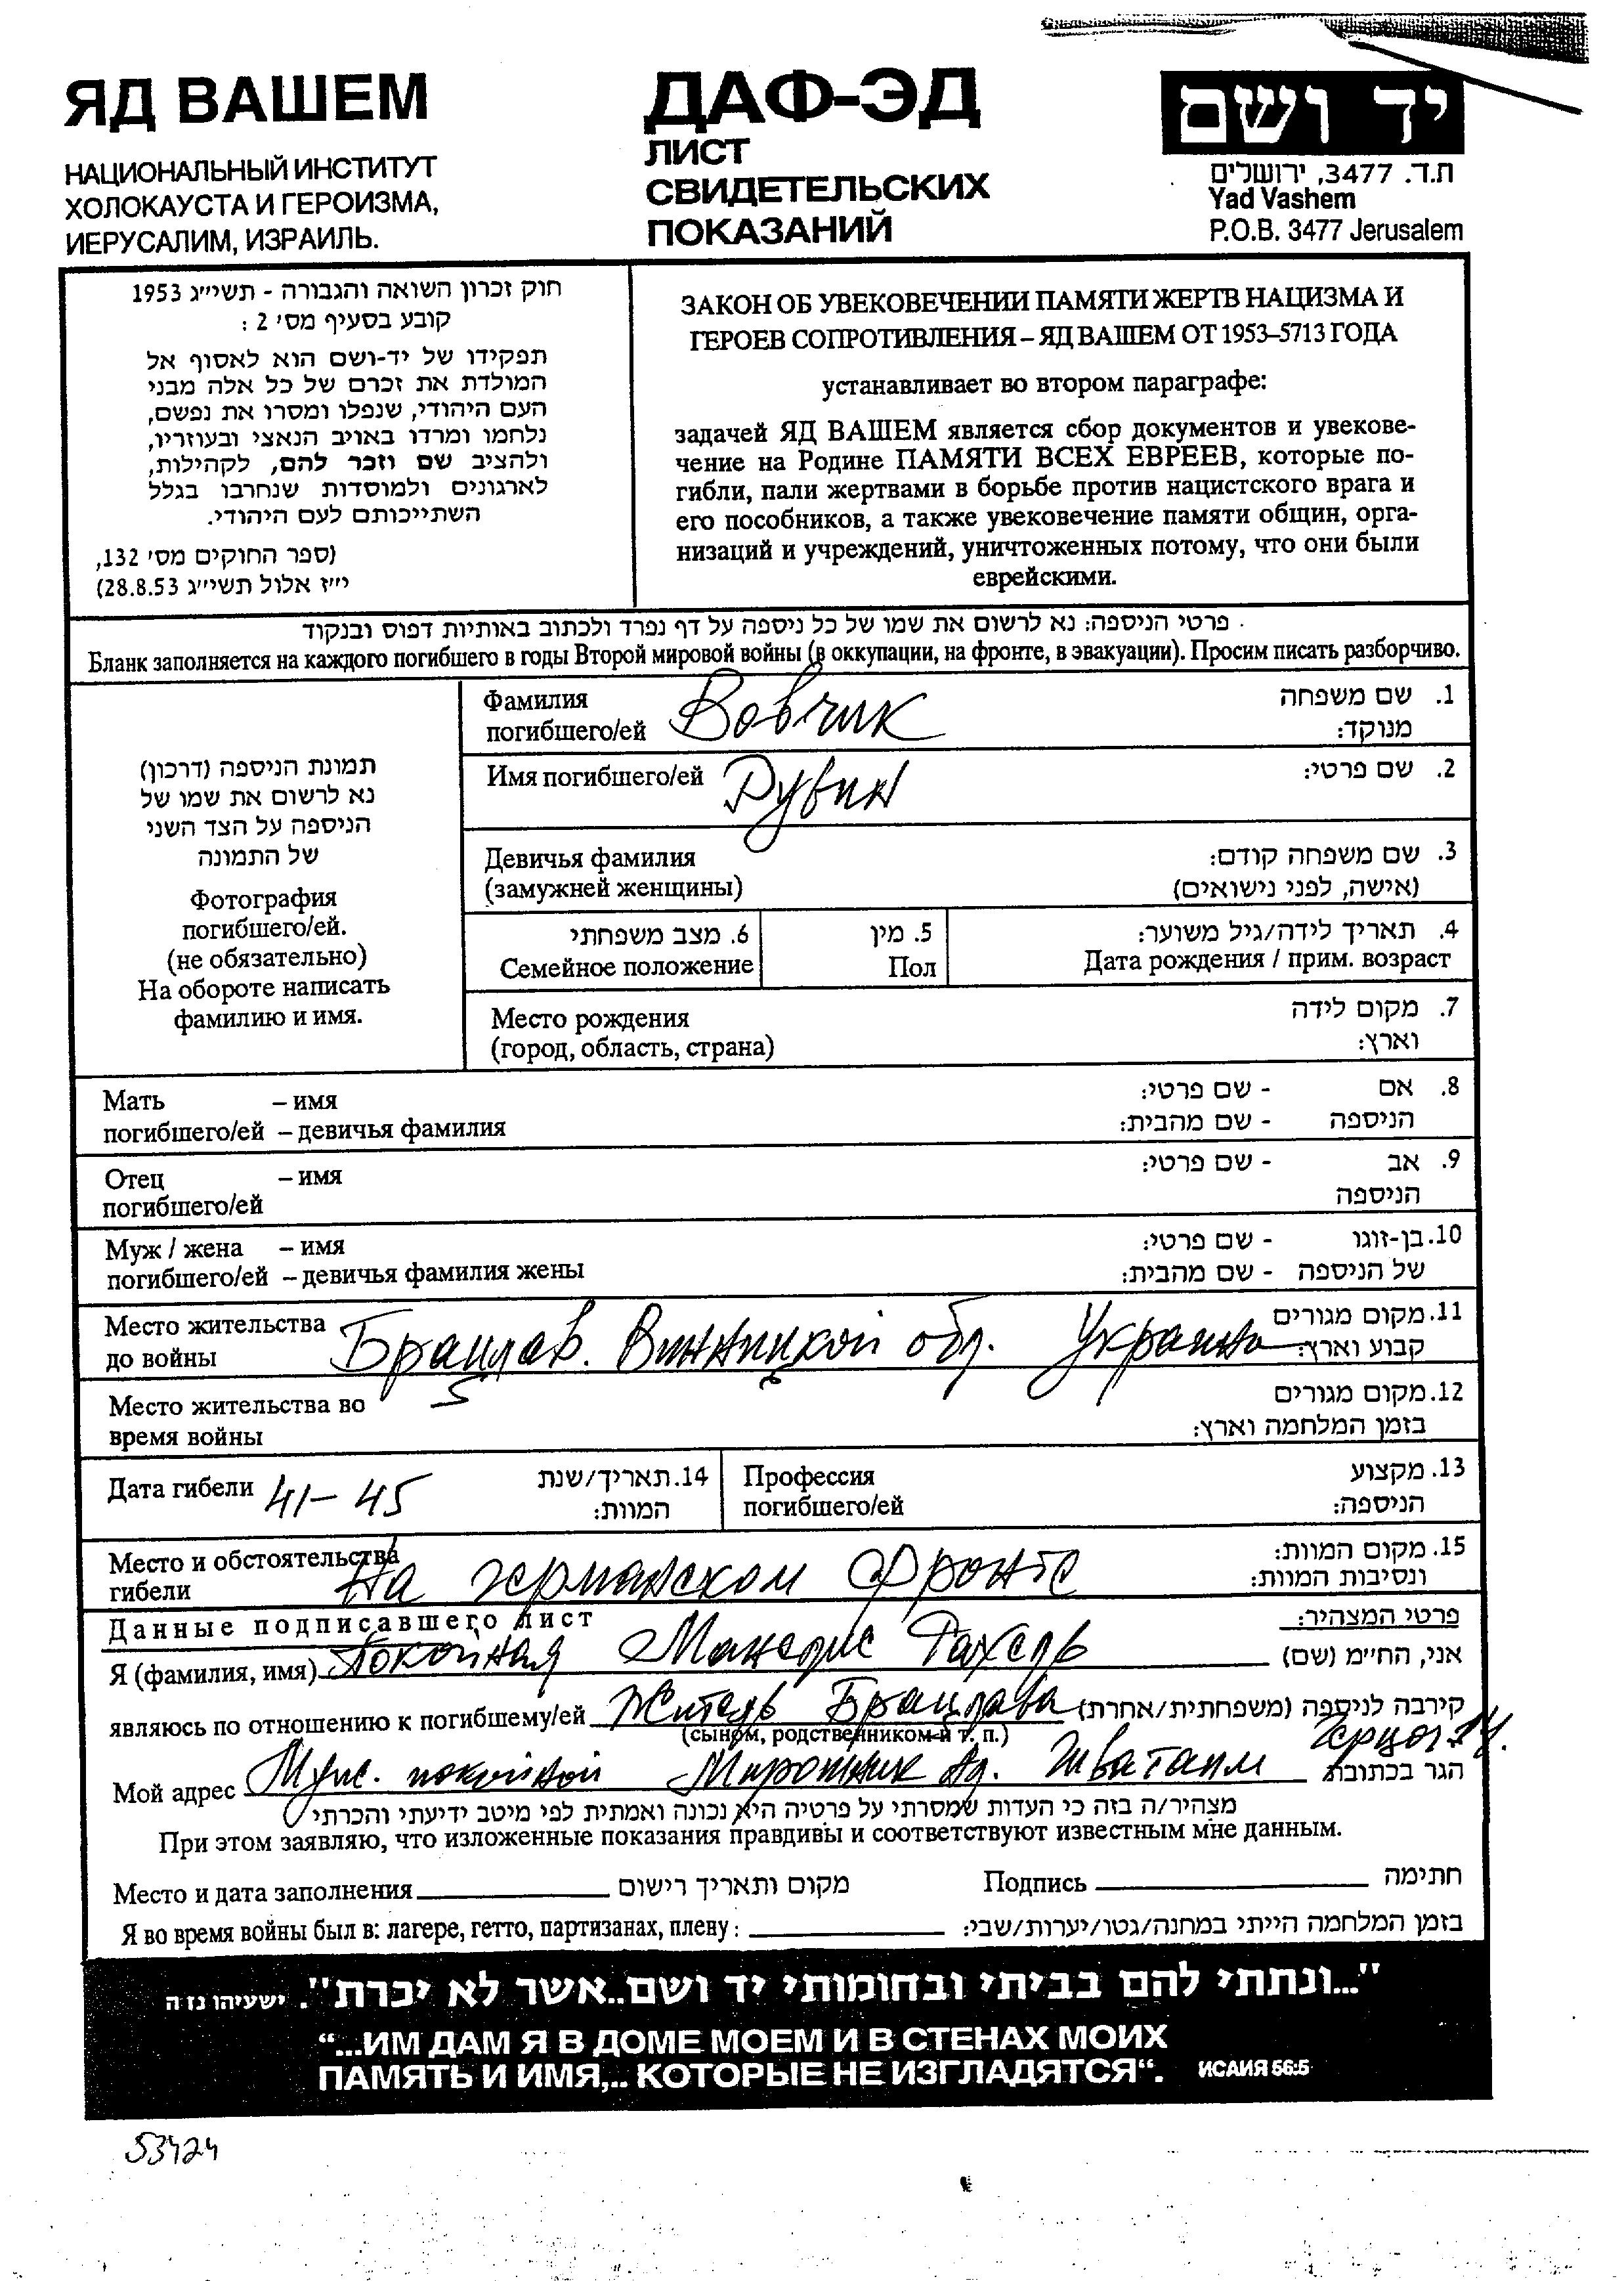 ЯД ВАШЕМ
НАЦИОНАЛЬНЫЙ ИНСТИТУТ
ХОЛОКАУСТА И ГЕРОИЗМА,
ИЕРУСАЛИМ, ИЗРАИЛЬ.
ДАФ-ЭД
ЛИСТ
СВИДЕТЕЛЬСКИХ
ПОКАЗАНИЙ
יד ושם
ת.ד. 3477, ירושלים
Yad Vashem
P.O.B. 3477 Jerusalem
חוק זכרון השואה והגבורה - תשי״ג 1953
קובע בסעיף מס׳ 2 :
תפקידו של יד-ושם הוא לאסוף אל
המולדת את זכרם של כל אלה מבני
העם היהודי, שנפלו ומסרו את נפשם,
נלחמו ומרדו באויב הנאצי ובעוזריו,
ולהציב שם וזכר להם, לקהילות,
לארגונים ולמוסדות שנחרבו בגלל
השתייכותם לעם היהודי.
(ספר החוקים מס׳ 132,
י״ז אלול תשי״ג 28.8.53)
ЗАКОН ОБ УВЕКОВЕЧЕНИИ ПАМЯТИ ЖЕРТВ НАЦИЗМА И
ГЕРОЕВ СОПРОТИВЛЕНИЯ – ЯД ВАШЕМ ОТ 1953–5713 ГОДА
устанавливает во втором параграфе:
задачей ЯД ВАШЕМ является сбор документов и увекове-
чение на Родине ПАМЯТИ ВСЕХ ЕВРЕЕВ, которые по-
гибли, пали жертвами в борьбе против нацистского врага и
его пособников, а также увековечение памяти общин, орга-
низаций и учреждений, уничтоженных потому, что они были
еврейскими.
פרטי הניספה: נא לרשום את שמו של כל ניספה על דף נפרד ולכתוב באותיות דפוס ובנקוד
Бланк заполняется на каждого погибшего в годы Второй мировой войны (в оккупации, на фронте, в эвакуации). Просим писать разборчиво.
תמונת הניספה (דרכון)
נא לרשום את שמו של
הניספה על הצד השני
של התמונה
Фотография
погибшего/ей.
(не обязательно)
На обороте написать
фамилию и имя.
Фамилия 1. שם משפחה
погибшего/ей Вовчик מנוקד:
Имя погибшего/ей Рувин 2. שם פרטי:
Девичья фамилия 3. שם משפחה קודם:
(замужней женщины) (אישה, לפני נישואים)
6. מצב משפחתי 5. מין 4. תאריך לידה/גיל משוער:
Семейное положение Пол Дата рождения / прим. возраст
Место рождения 7. מקום לידה
(город, область, страна) וארץ:
Мать – имя - שם פרטי: 8. אם
погибшего/ей – девичья фамилия - שם מהבית: הניספה
Отец – имя - שם פרטי: 9. אב
погибшего/ей הניספה
Муж / жена – имя - שם פרטי: 10.בן-זוגו
погибшего/ей – девичья фамилия жены - שם מהבית: של הניספה
Место жительства 11.מקום מגורים
до войны Брацлав. Винницкой обл. Украина קבוע וארץ:
Место жительства во 12.מקום מגורים
время войны בזמן המלחמה וארץ:
Дата гибели 41–45 14.תאריך/שנת המוות:
Профессия 13. מקצוע
погибшего/ей הניספה:
Место и обстоятельства 15. מקום המוות:
гибели На германском фронте ונסיבות המוות:
Данные подписавшего лист פרטי המצהיר:
Я (фамилия, имя) Покойная Рахель אני, החי״מ (שם)
являюсь по отношению к погибшему/ей Житель Брацлава קירבה לניספה (משפחתית/אחרת)
(сыном, родственником и т. п.)
Мой адрес Муж. покойной Мирошник Ад. הגר בכתובת
מצהיר/ה בזה כי העדות שמסרתי על פרטיה היא נכונה ואמתית לפי מיטב ידיעתי והכרתי
При этом заявляю, что изложенные показания правдивы и соответствуют известным мне данным.
Место и дата заполнения מקום ותאריך רישום Подпись חתימה
Я во время войны был в: лагере, гетто, партизанах, плену: בזמן המלחמה הייתי במחנה/גטו/יערות/שבי:
"...ונתתי להם בביתי ובחומותי יד ושם..אשר לא יכרת". ישעיהו נז ה
“...ИМ ДАМ Я В ДОМЕ МОЕМ И В СТЕНАХ МОИХ
ПАМЯТЬ И ИМЯ,.. КОТОРЫЕ НЕ ИЗГЛАДЯТСЯ“. ИСАИЯ 56:5
53424